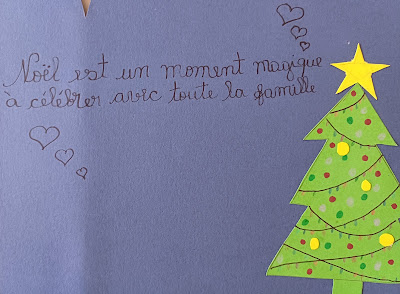 Noël est un moment magique
à célébrer avec toute la famille